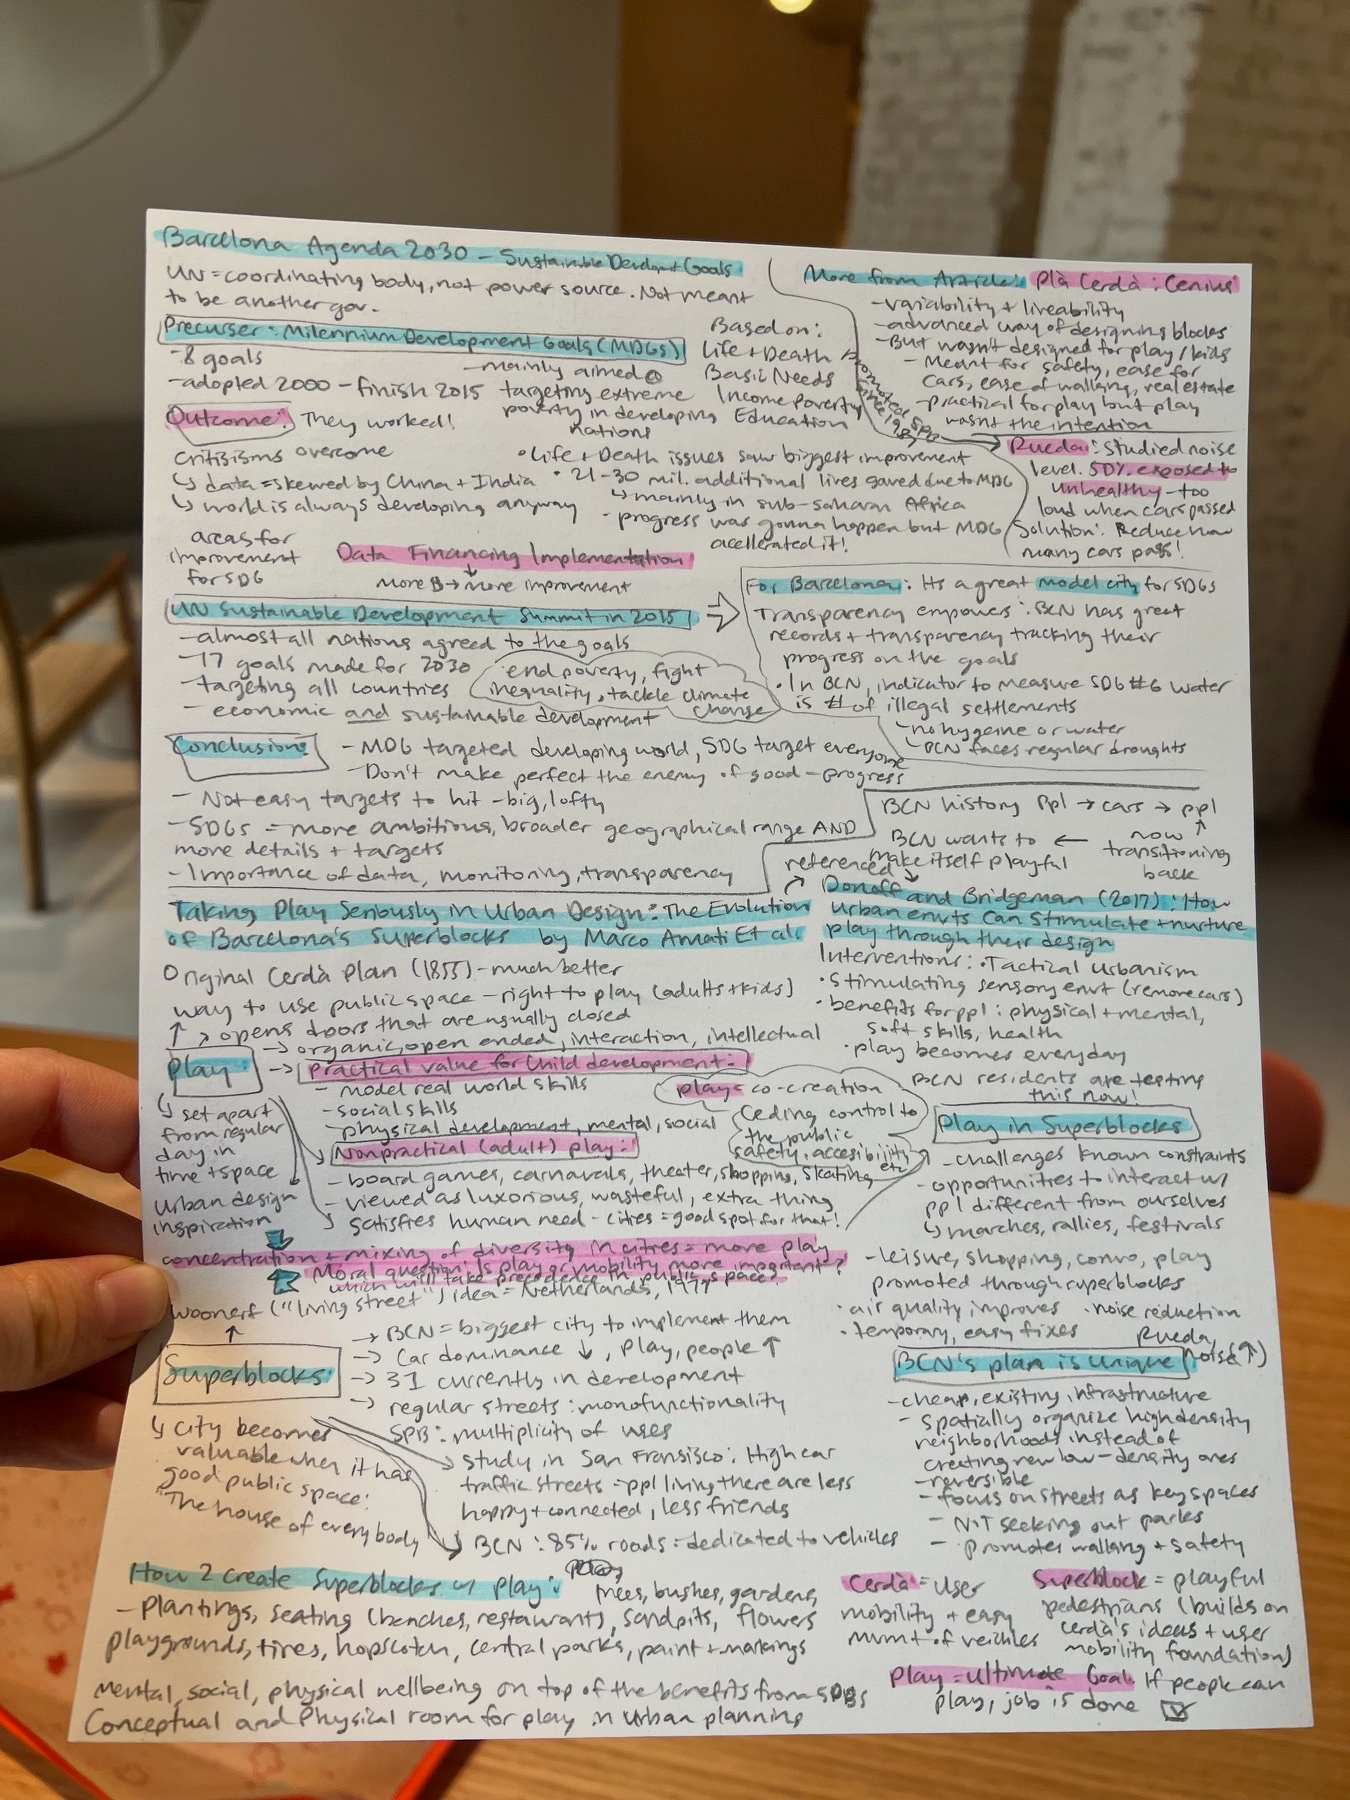 Barcelona Agenda 2030 - Sustainable Develpmt Goals
UN = coordinating body, not power source. Not meant
to be another gov.
Precurser: Milennium Development Goals (MDGs)
-8 goals
-adopted 2000 - finish 2015
-mainly aimed @
targeting extreme
poverty in developing
nations
Based on:
Life + Death
Basic Needs
Income poverty
Education
Outcome: They worked!
critisisms overcome
↳ data = skewed by China + India
↳ world is always developing anyway
• Life + Death issues saw biggest improvement
• 21-30 mil. additional lives saved due to MDG
↳ mainly in sub-saharan Africa
- progress was gonna happen but MDG
acellerated it!
areas for
improvement
for SDG
Data Financing Implementation
More $ → more improvement
UN Sustainable Development Summit in 2015
-almost all nations agreed to the goals
-17 goals made for 2030
-targeting all countries
- economic and sustainable development
end poverty, fight
inequality, tackle climate
change
Conclusion:
- MDG targeted developing world, SDG target everyone
- Don't make perfect the enemy of good - progress
- Not easy targets to hit - big, lofty
- SDGs = more ambitious, broader geographical range AND
more details + targets
- Importance of data, monitoring, transparency
More from Article: Plà Cerdà: Genius
-variability + liveability
-advanced way of designing blocks
-But wasn't designed for play/kids
- Meant for safety, ease for
cars, ease of walking, real estate
-practical for play but play
wasnt the intention
promoted SPB
since 1987
Rueda: studied noise
level. 50% exposed to
unhealthy - too
loud when cars passed
Solution: Reduce how
many cars pass!
For Barcelona: Its a great model city for SDGs
Transparency empowers: BCN has great
records + transparency tracking their
progress on the goals
• In BCN, indicator to measure SDG #6 water
is # of illegal settlements
-no hygeine or water
- BCN faces regular droughts
BCN history ppl → cars → ppl
now
transitioning
back
BCN wants to
make itself playful
referenced
Taking Play Seriously in Urban Design: The Evolution
of Barcelona's Superblocks by Marco Amati Et al.
Original Cerdà Plan (1855) - much better
way to use public space - right to play (adults + kids)
→ opens doors that are usually closed
→ organic, open ended, interaction, intellectual
Play:
→ practical value for Child development:
- model real world skills
-social skills
-physical development, mental, social
Nonpractical (adult) play:
- board games, carnavals, theater, shopping, skating etc
- viewed as luxorious, wasteful, extra thing
satisfies human need - cities = good spot for that!
↳ set apart
from regular
day in
time + space
urban design
inspiration
play = co-creation
Ceding control to
the public
safety, accesibility
concentration + mixing of diversity in cities = more play
Moral question: Is play or mobility more important?
which will take precedence in public space?
woonerf ("living street") idea = Netherlands, 1977
Superblocks:
→ BCN = biggest city to implement them
→ Car dominance ↓, Play, people ↑
→ 31 currently in development
→ regular streets: monofunctionality
SPB: multiplicity of uses
study in San Fransisco: High car
traffic streets = ppl living there are less
happy + connected, less friends
BCN: 85% roads = dedicated to vehicles
↳ city becomes
valuable when it has
good public space:
"The house of everybody
Donoff and Bridgeman (2017): How
urban envts can stimulate + nurture
play through their design
Interventions: • Tactical Urbanism
• stimulating sensory envt (remove cars)
• benefits for ppl: physical + mental,
soft skills, health
• play becomes everyday
BCN residents are testing
this now!
Play in Superblocks
- challenges known constraints
- opportunities to interact w/
ppl different from ourselves
↳ marches, rallies, festivals
- leisure, shopping, convo, play
promoted through superblocks
• air quality improves • noise reduction
• temporary, easy fixes
Rueda
(noise ↑)
BCN's plan is unique
- cheap, existing infrastructure
- spatially organize high density
neighborhoods instead of
creating new low-density ones
-reversible
- focus on streets as key spaces
- NOT seeking out parks
- promotes walking + safety
How 2 Create Superblocks w/ Play:
trees, bushes, gardens,
- plantings, seating (benches, restaurant), sandpits, flowers
playgrounds, tires, hopscotch, central parks, paint + markings
Mental, social, physical wellbeing on top of the benefits from SPBs
Conceptual and Physical room for play in urban planning
Cerdà = user
mobility + easy
mvmt of veichles
Superblock = playful
pedestrians (builds on
cerdà's ideas + user
mobility foundation)
Play = ultimate Goal. If people can
play, job is done ☑